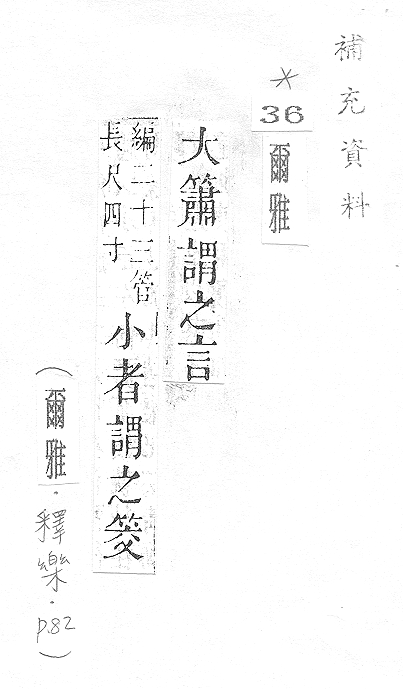 補充資料
*
36
爾雅
大簫謂之言
編二十三管
長尺四寸
小者謂之筊
(爾雅·釋樂·p.82)